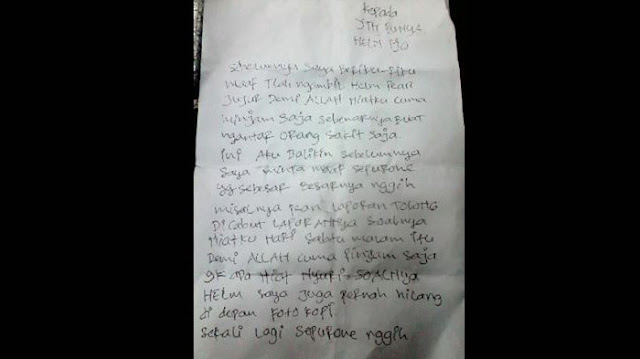 Kepada
YTH PUNYA
HELM IJO
sebelumnya saya
maaf Tlah ngambil HELM
Jujur Demi ALLAH Niatku cuma
minjam saja sebenarnya BUAT
ngantar ORang sakit saja.
ini AKU BALIKIN sebelumnya
saya minta maaf sepurone
yg sebesar besarnya nggih
misalnya LAPORAN TOLONG
Di cabut LAPORANnya soalnya
Niatku HARI sabtu malam itu
Demi ALLAH cuma Pinjam saja
gk NiaT SOALNYA
HELM saya juga pernah hilang
di depan FOTO KOPI.
sekali lagi sepurone nggih